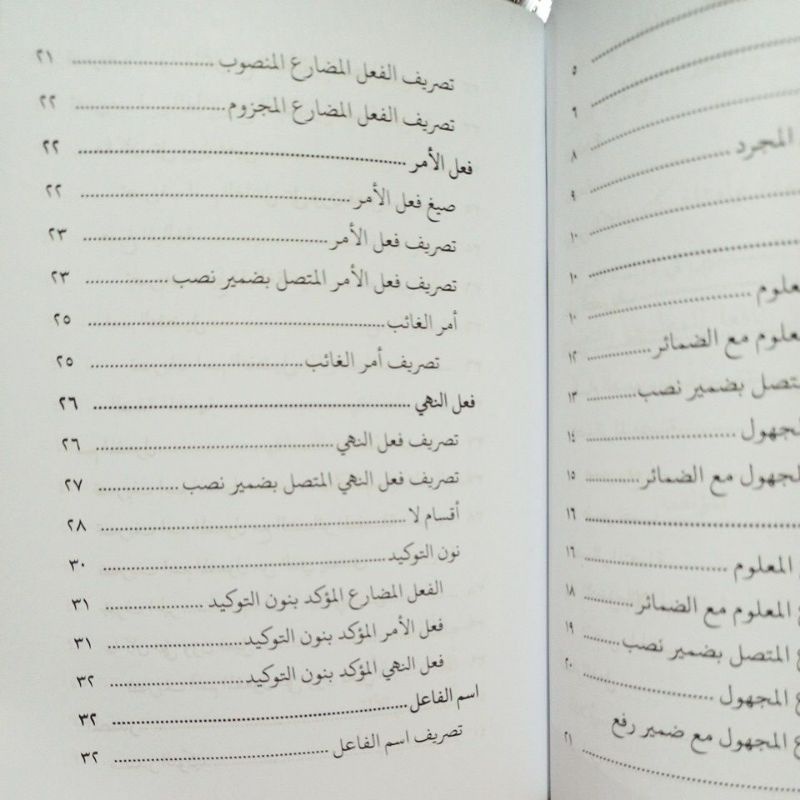 ٥
٦
المجرد ٨
٩
١٠
١٠
١٠
مع الضمائر ١٢
بضمير نصب ١٣
١٤
مع الضمائر ١٥
١٦
المعلوم ١٦
المعلوم مع الضمائر ١٨
المتصل بضمير نصب ١٩
المجهول ٢٠
المجهول مع ضمير رفع ٢١
تصريف الفعل المضارع المنصوب ٢١
تصريف الفعل المضارع المجزوم ٢٢
فعل الأمر ٢٢
صيغ فعل الأمر ٢٢
تصريف فعل الأمر ٢٣
تصريف فعل الأمر المتصل بضمير نصب ٢٣
أمر الغائب ٢٥
تصريف أمر الغائب ٢٥
فعل النهي ٢٦
تصريف فعل النهي ٢٦
تصريف فعل النهي المتصل بضمير نصب ٢٧
أقسام لا ٢٨
نون التوكيد ٣٠
الفعل المضارع المؤكد بنون التوكيد ٣١
فعل الأمر المؤكد بنون التوكيد ٣١
فعل النهي المؤكد بنون التوكيد ٣٢
اسم الفاعل ٣٢
تصريف اسم الفاعل ٣٢